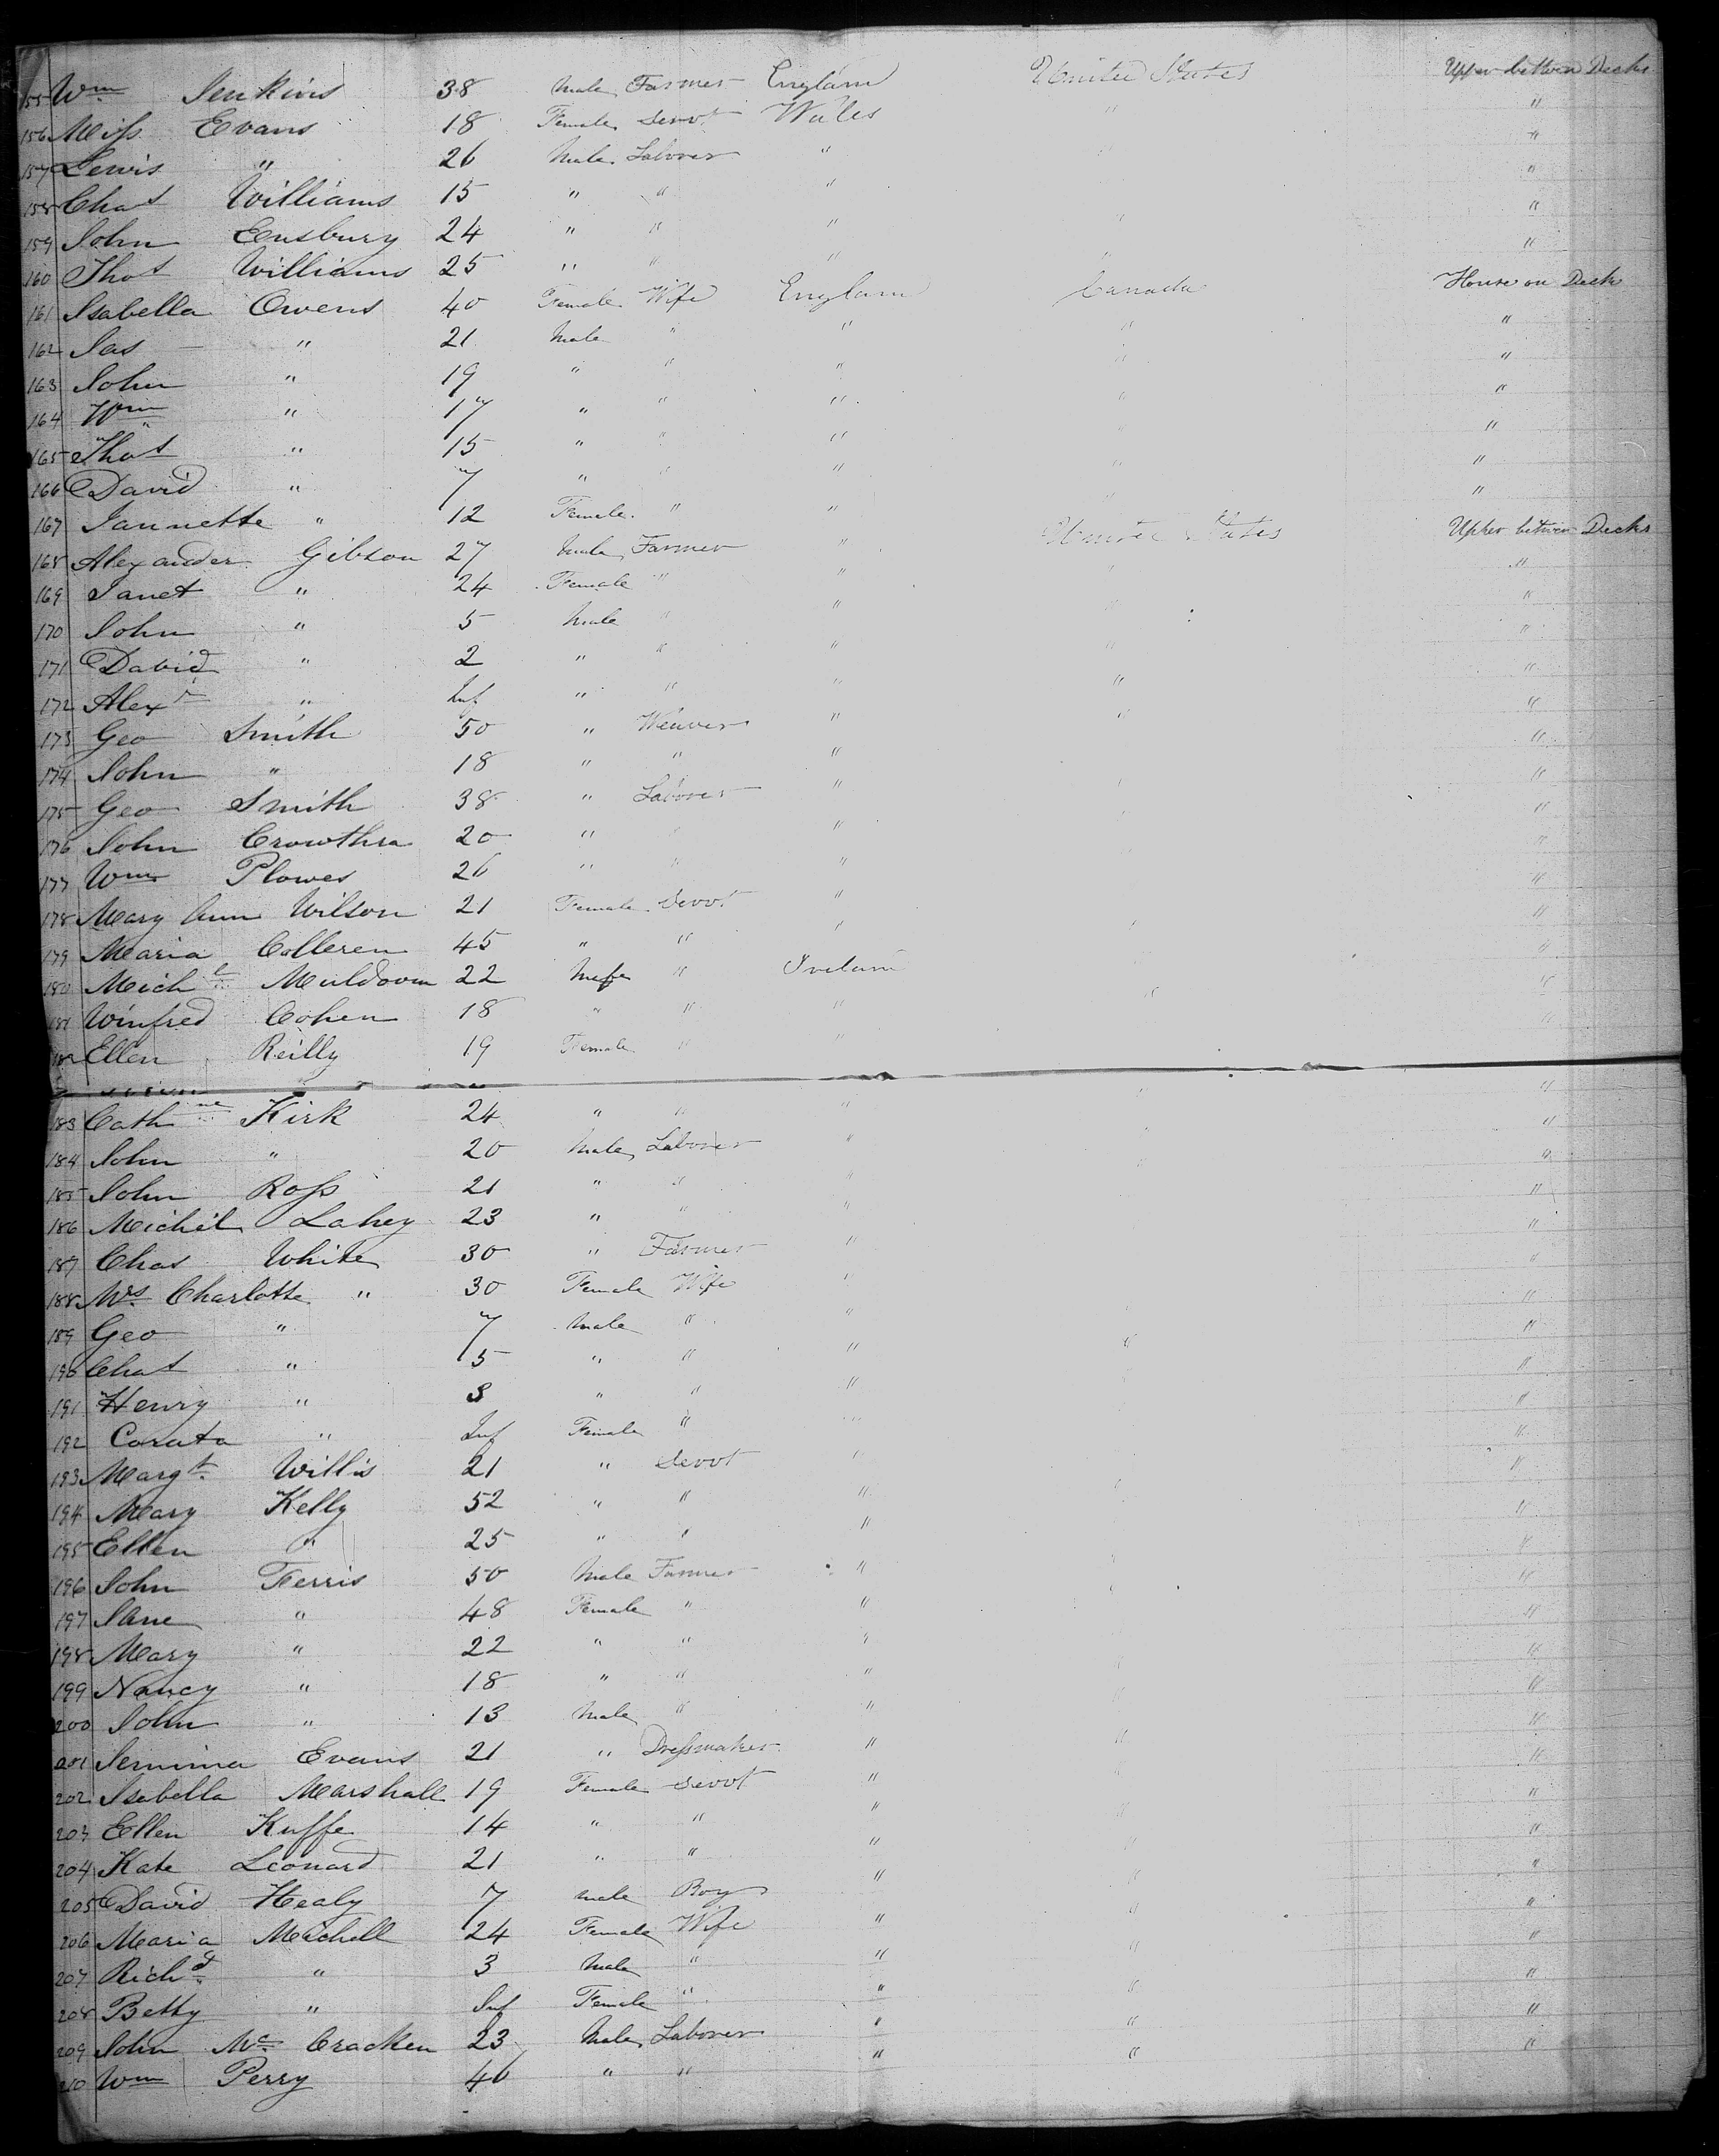 155 Wm Jenkins 38 Male Farmer England United States Upper between Decks
156 Miss Evans 18 Female Servt Wales " "
157 Lewis " 26 Male Laborer " " "
158 Chas Williams 15 " " " "
159 John Ensbury 24 " " " " "
160 Thos Williams 25 " " " " "
161 Isabella Owens 40 Female Wife England Canada House on Deck
162 Jas " 21 Male " " " "
163 John " 19 " " " " "
164 Wm " 17 " " " " "
165 Thos " 15 " " " " "
166 David " 7 " " " " "
167 Jannette " 12 Female " " " "
168 Alexander Gibson 27 Male Farmer " United States Upper between Decks
169 Janet " 24 Female " " " "
170 John " 5 Male " " " "
171 David " 2 " " " " "
172 Alexr " Inf " " " " "
173 Geo Smith 50 " Weaver " " "
174 John " 18 " " " "
175 Geo Smith 38 " Laborer " " "
176 John Crowthra 20 " " " "
177 Wm Plowes 26 " " " "
178 Mary Ann Wilson 21 Female Servt " "
179 Maria Colleren 45 " " " " "
180 Michl Muldoon 22 Male " Ireland "
181 Winfred Cohen 18 " " " " "
182 Ellen Reilly 19 Female " " "
183 Cathne Kirk 24 " " " " "
184 John " 20 Male Laborer " "
185 John Ross 21 " " " " "
186 Michel Lahey 23 " " " "
187 Chas White 30 " Farmer " "
188 Mrs Charlotte " 30 Female Wife " "
189 Geo " 7 Male " " " "
190 Chas " 5 " " " " "
191 Henry " 3 " " " "
192 Corata " Inf Female " " "
193 Margt Willis 21 " Servt " "
194 Mary Kelly 52 " " " " "
195 Ellen " 25 " " " "
196 John Ferris 50 Male Farmer " "
197 Jane " 48 Female " " " "
198 Mary " 22 " " " "
199 Nancy " 18 " " " " "
200 John " 13 Male " " " "
201 Jemima Evans 21 " Dressmaker " " "
202 Isabella Marshall 19 Female Servt " " "
203 Ellen Kuffe 14 " " " " "
204 Kate Leonard 21 " " " " "
205 David Healy 7 Male Boy " " "
206 Maria Mechell 24 Female Wife " " "
207 Richd " 3 Male " " " "
208 Betty " Inf Female " " " "
209 John Mc Cracken 23 Male Laborer " " "
210 Wm Perry 46 " " " " "